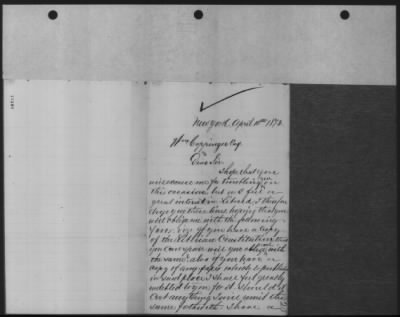 New York April 10th 1872
Wm Coppinger Esq
Dear Sir
I hope that you
will excuse me for troubling you on
this occasion, but as I find
great interest in Liberia, I therefore
hope you
will oblige me with the following
favor, viz if you have a copy
of the Liberian Constitution that
you can spare will you oblige me with
the same, also if you have a
copy of any paper which is published
in said place I shall feel greatly
indebted to you for it. Should it
Cost anything I will remit the
same forthwith. I have a